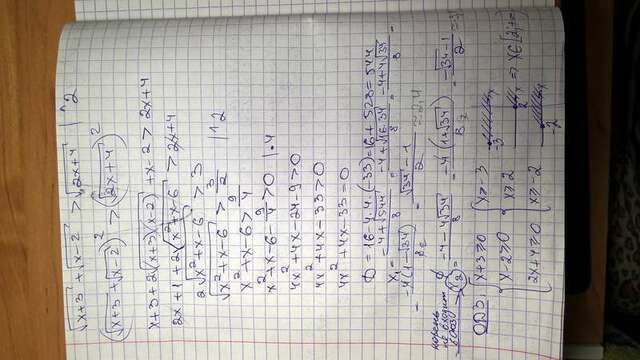 √x+3 + √x-2 > √2x+4 | ^2
(√x+3 + √x-2)² > (√2x+4)²
x+3+2√(x+3)(x-2) + x-2 > 2x+4
2x+1+2√x²+x-6 > 2x+4
2√x²+x-6 > 3
√x²+x-6 > 3/2 | ^2
x²+x-6 > 9/4
x²+x-6-9/4 > 0 | ·4
4x²+4x-24-9>0
4x²+4x-33>0
4x²+4x-33=0
D = 16-4·4·(-33)=16+528=544
x₁ = -4+√544/8 = -4+√16·34/8 = -4+4√34/8 =
= -4(1-√34)/8₂ = √34-1/2 ≈2,4
корень не входит в ОДЗ x₂ = -4-4√34/8 = -4(1+√34)/8₂ = -√34-1/2 ≈-3,
ОДЗ: { x+3≥0 { x≥-3 -3 x
x-2≥0 x≥2 2 x => x∈[2;+∞)
2x+4≥0 x≥-2 -2 x